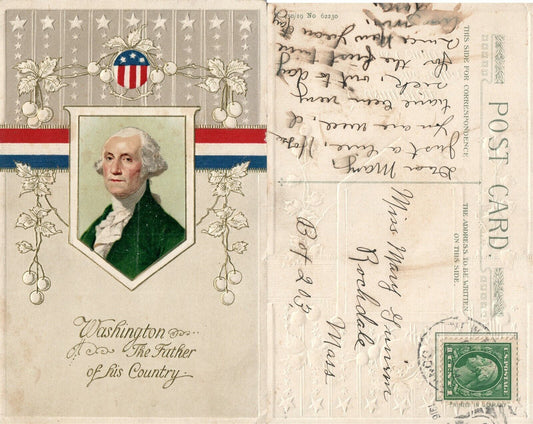 Washington
The Father
of his Country.
POST CARD.
THIS SIDE FOR CORRESPONDENCE
THE ADDRESS TO BE WRITTEN
ON THIS SIDE.
No 62230
Dear Mary,
Just a line, Hope
you are well, I
have been very
sick, out to day
for the first time
since New Years
Miss Mary
Rochdale
Mass
Box 203
U.S. POSTAGE
1 CENT 1